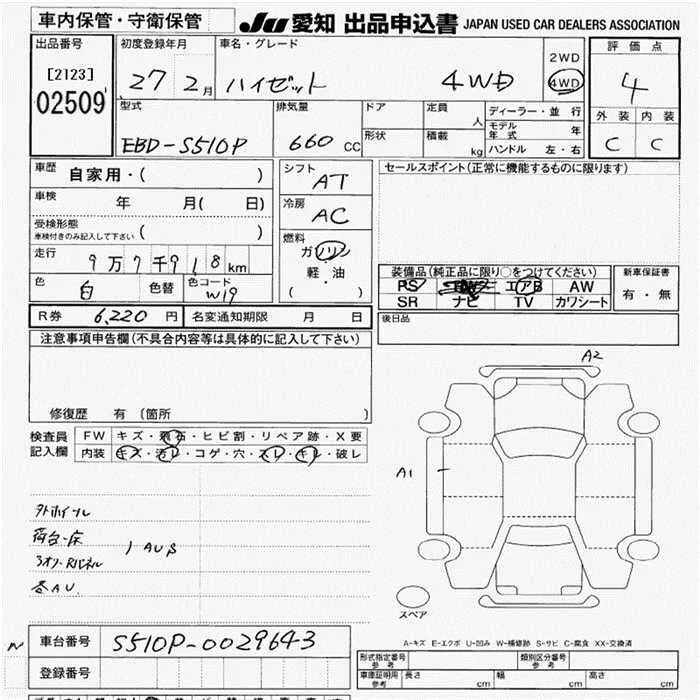 車内保管・守衛保管
JU 愛知 出品申込書 JAPAN USED CAR DEALERS ASSOCIATION
出品番号 初度登録年月 車名・グレード 2WD 評価点
[2123] 27 2月 ハイゼット 4WD 4WD 4
02509 外装 内装
型式 排気量 ドア 定員 人 ディーラー・並行
EBD-S510P 660cc 形状 積載 kg モデル年式 年 C C
ハンドル 左・右
車歴 自家用・( ) シフト AT セールスポイント(正常に機能するものに限ります)
車検 年 月( 日) 冷房 AC
受検形態
車検付きのみ記入して下さい ( )
燃料
走行 9万7千918km ガソリン
軽・油
( )
装備品(純正品に限り○をつけてください) 新車保証書
色 白 色替 色コード W19 PS エアB AW 有・無
SR ナビ TV カワシート
R券 6,220円 名変通知期限 月 日 後日品
注意事項申告欄(不具合内容等は具体的に記入して下さい)
A2
修復歴 有(箇所 )
検査員 FW キズ・飛石・ヒビ割・リペア跡・X要
記入欄 内装 キズ・汚レ・コゲ・穴・スレ・キレ・破レ
A1
外ホイール
荷台・床
1 AUS
各AU
スペア
A-キズ E-エクボ U-凹み W-補修跡 S-サビ C-腐食 XX-交換済
車台番号 S510P-0029643
型式指定番号 参考 類別区分番号 参考
登録番号 車庫証明用 参考 長さ cm 幅 cm 高さ cm